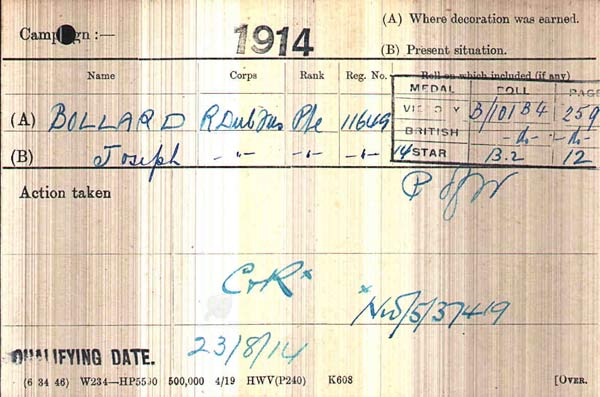 (A) Where decoration was earned.
Campaign :— 1914
(B) Present situation.
Name Corps Rank Reg. No. Roll on which included (if any)
MEDAL ROLL PAGE
(A) BOLLARD R Dub Fus Pte 11649 VICTORY B/101 B4 259
BRITISH -do- -do-
(B) Joseph -"- -"- -"- 14 STAR B.2 12
Action taken P of W
C & R x
x NW/5/37419
QUALIFYING DATE. 23/8/14
(6 34 46) W234—HP5590 500,000 4/19 HWV(P240) K608 [OVER.